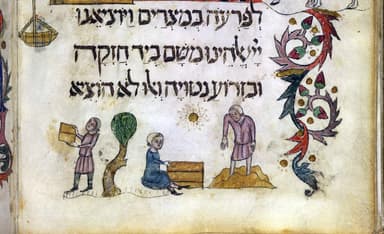 לפרעה במצרים ויוציאנו
יי אלהינו משם ביד חזקה
ובזרוע נטויה ואלו לא הוציא